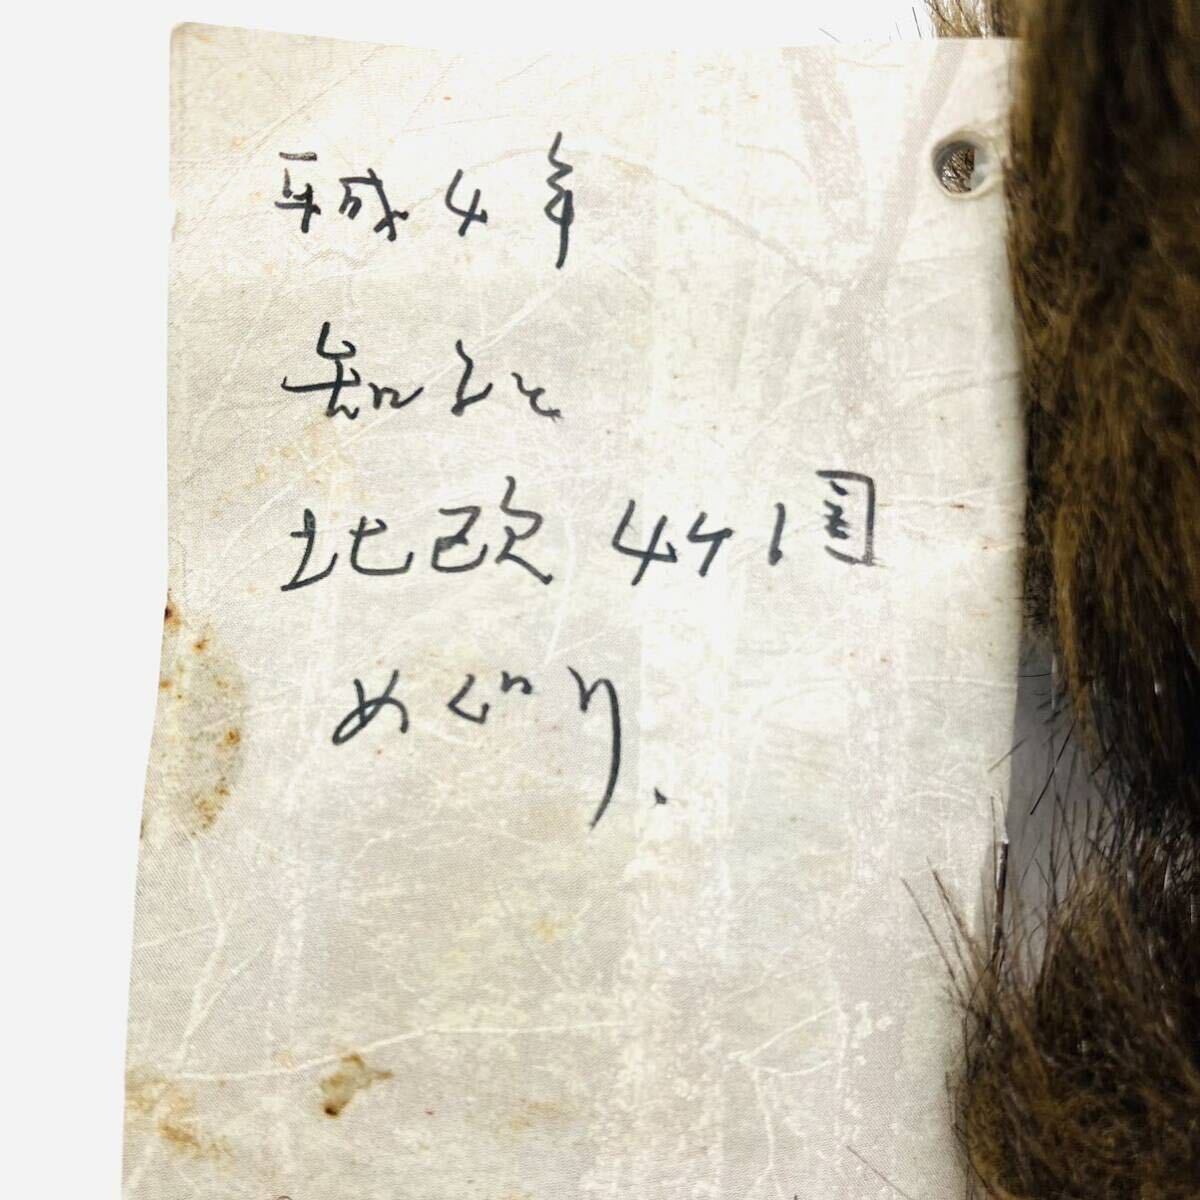 平成4年
知子と
北欧4ケ国
めぐり.